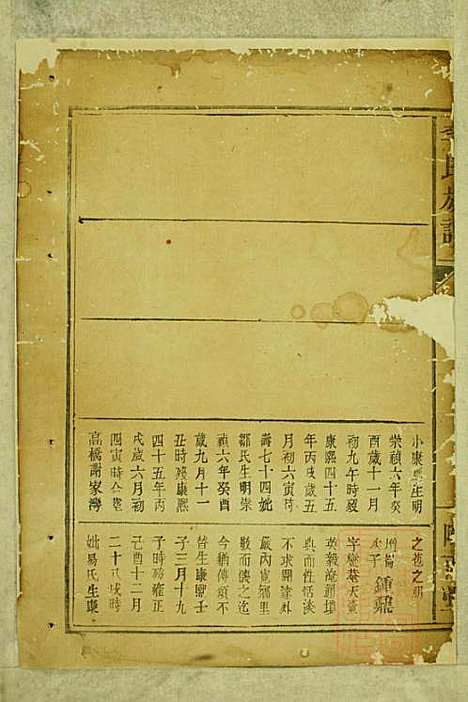 李氏族譜
小康熙生明
崇禎六年癸
酉歲十一月
初九午時歿
康熙四十五
年丙戌歲五
月初六寅時
壽七十四妣
鄒氏生明崇
禎六年癸酉
歲九月十一
丑時歿康熙
四十五年丙
戌歲六月初
四寅時合塟
高橋謝家灣
之德之嗣
次子鍾巃
字楚菴天資
英毅
典而性恬淡
不求聞達外
嚴內寬鄉里
敬而懷之迄
今猶傳頌不
替生康熙壬
子三月十九
子時歿雍正
己酉十二月
二十戌時
妣易氏生康